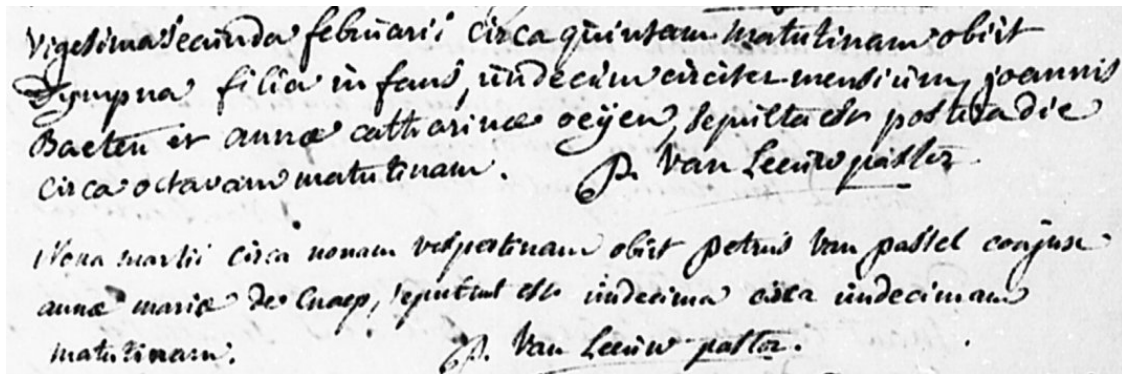 vigesima secunda februarii circa quintam matutinam obiit
Dympna filia infans, undecim circiter mensium, joannis
Baeten et annæ catharinæ oeyen, sepulta est postera die
circa octavam matutinam. P. Van Leeuw pastor
Nona martii circa nonam vespertinam obiit petrus Van passel conjux
annæ mariæ de Cnaep, sepultus est undecima circa undecimam
matutinam. P. Van Leeuw pastor.